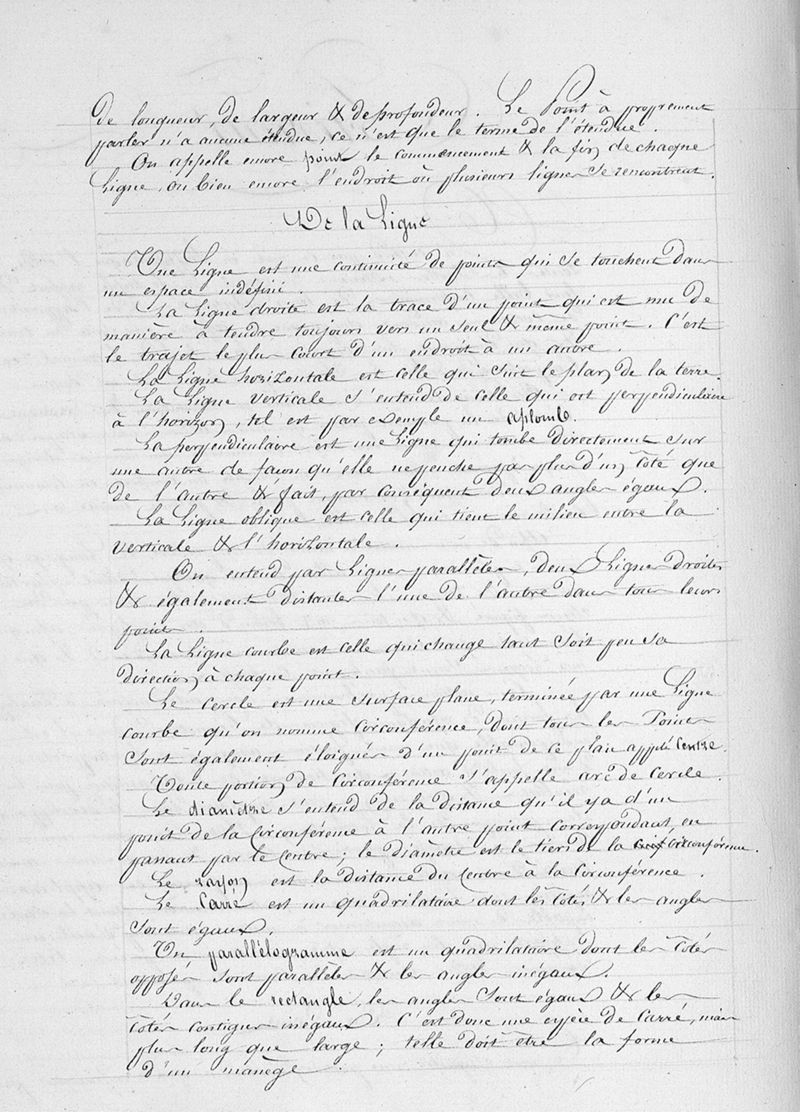 de longueur, de largeur & de profondeur. Le Point à proprement
parler n'a aucune étendue, ce n'est que le terme de l'étendue.
On appelle encore point le commencement & la fin de chaque
Ligne, ou bien encore l'endroit où plusieurs lignes se rencontrent.
De la Ligne
Une Ligne est une continuité de points qui se touchent dans
un espace indéfini.
La Ligne droite est la trace d'un point qui est mu de
manière à tendre toujours vers un seul & même point. C'est
le trajet le plus court d'un endroit à un autre.
La Ligne horizontale est celle qui suit le plan de la terre.
La Ligne verticale s'entend de celle qui est perpendiculaire
à l'horizon, tel est par exemple un aplomb.
La perpendiculaire est une Ligne qui tombe directement sur
une autre de façon qu'elle ne penche pas plus d'un côté que
de l'autre & fait, par conséquent deux angles égaux.
La Ligne oblique est celle qui tient le milieu entre la
verticale & l'horizontale.
On entend par Lignes parallèles, deux Lignes droites
& également distantes l'une de l'autre dans tous leurs
points.
La Ligne courbe est celle qui change tant soit peu sa
direction à chaque point.
Le Cercle est une surface plane, terminée par une Ligne
courbe qu'on nomme Circonférence, dont tous les Points
sont également éloignés d'un point de ce plan appelé Centre.
Toute portion de Circonférence s'appelle arc de Cercle.
Le diamètre s'entend de la distance qu'il y a d'un
point de la Circonférence à l'autre point correspondant, en
passant par le Centre; le Diamètre est le tiers de la circonférence.
Le rayon est la distance du Centre à la Circonférence.
Le Carré est un quadrilataire dont les Côtés & les angles
sont égaux.
Un parallélogramme est un quadrilataire dont les Côtés
opposés sont parallèles & les angles inégaux.
Dans le rectangle, les angles sont égaux & les
Côtés contigus inégaux. C'est donc une espèce de Carré, mais
plus long que large; telle doit être la forme
d'un manège.